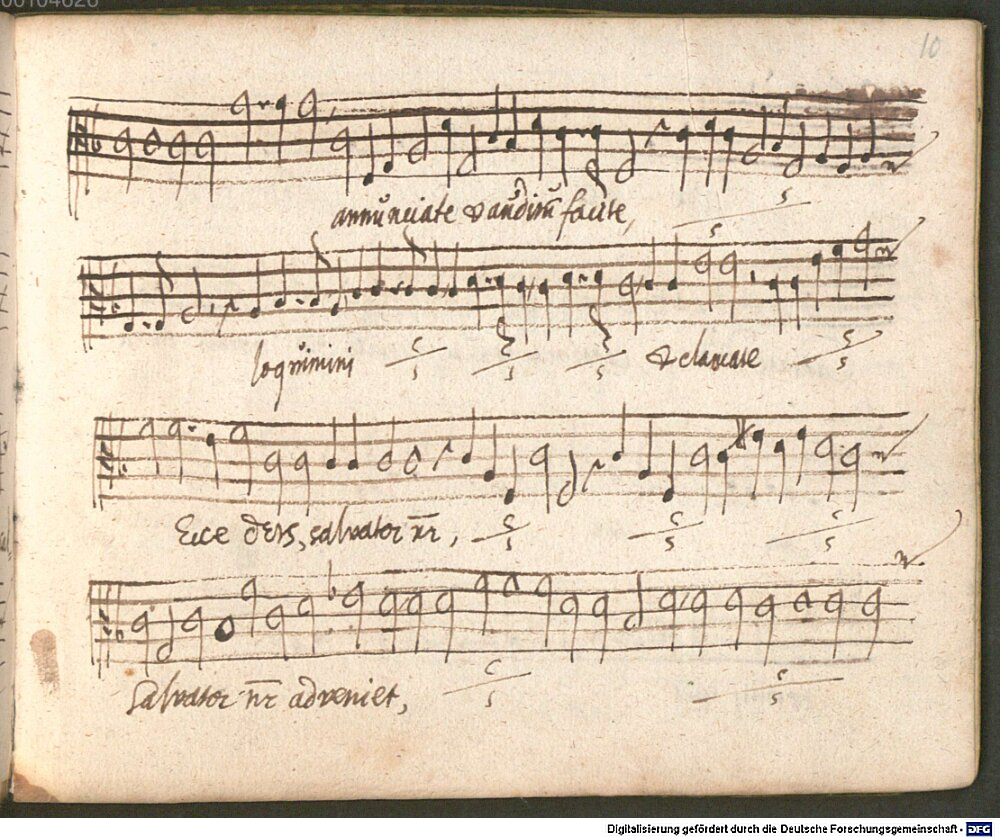 00104626
10
annūnciate & aūditū facite,
loqūimini & clamate
Ecce deūs, salvator nr̄,
Salvator nr̄ adveniet,
Digitalisierung gefördert durch die Deutsche Forschungsgemeinschaft - DFG